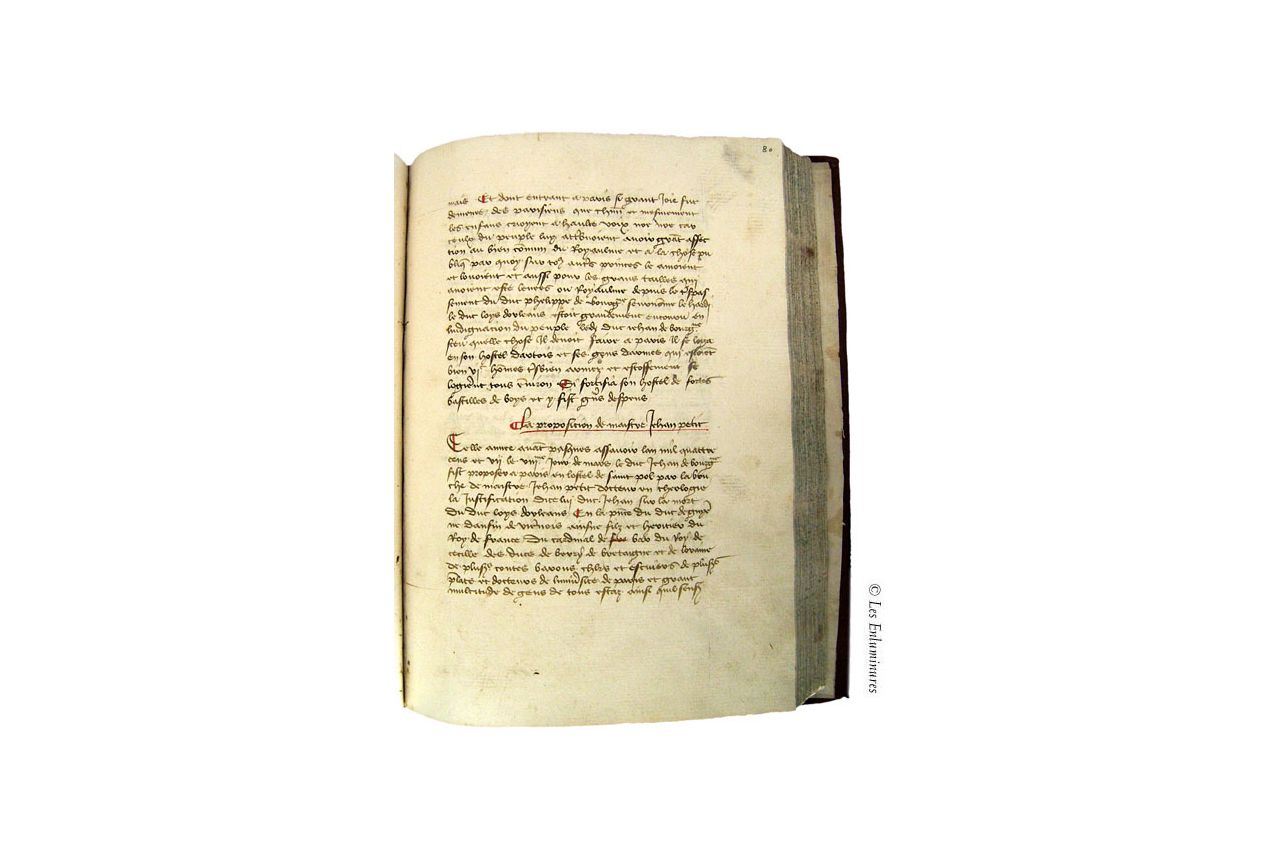 80
mais Et dont entrant a paris si grant Joie fut
demenee des parisiens que et mesmement
les enfans crioyent a haulte voix noe noe car
du peuple luy avoir grāt affec
tion au bien cōmun du Royaulme et a la chose pu
blīq par quoy sur to9 aut's princes le amoient
et louoient et aussi pour les grans tailles qui
avoient este levees ou Royaulme depuis le t'spas
sement du duc phelippe de bourg'ne le hardi
le duc loys dorleans estoit grandement encouru en
lindignacion du peuple Ledj duc Jehan de bourg'ne
quelle chose Il devoit faire a paris il se loga
en son hostel dartois et ses gens darmes qui estoiēt
bien vi hōmes t'sbien armez et se
logierēt tous Et fortifia son hostel de fortes
bastilles de boys et y fist despens
La proposicion de maistre Jehan petit
Celle annee avāt pasques assavoir lan mil quattre
cens et vii le viii Jour de mars le duc Jehan de bourg'ne
fist proposer a paris en lostel de saint pol par la bou
che de maistre Jehan petit docteur en theologie
la Justificacion dicelui duc Jehan sur la mort
du duc loys dorleans En la du duc de guye
ne daufin de viēnois ainsne filz et heritier du
Roy de France Du cardinal de bar du Roy de
cecille des ducs de berry de bretaigne et de loraine
de plus's contes barons chl'rs et escuiers de plus's
p'lats et docteurs de luniv'site de paris et grant
multitude de gens de tous estaz ainsi
© Les Enluminures